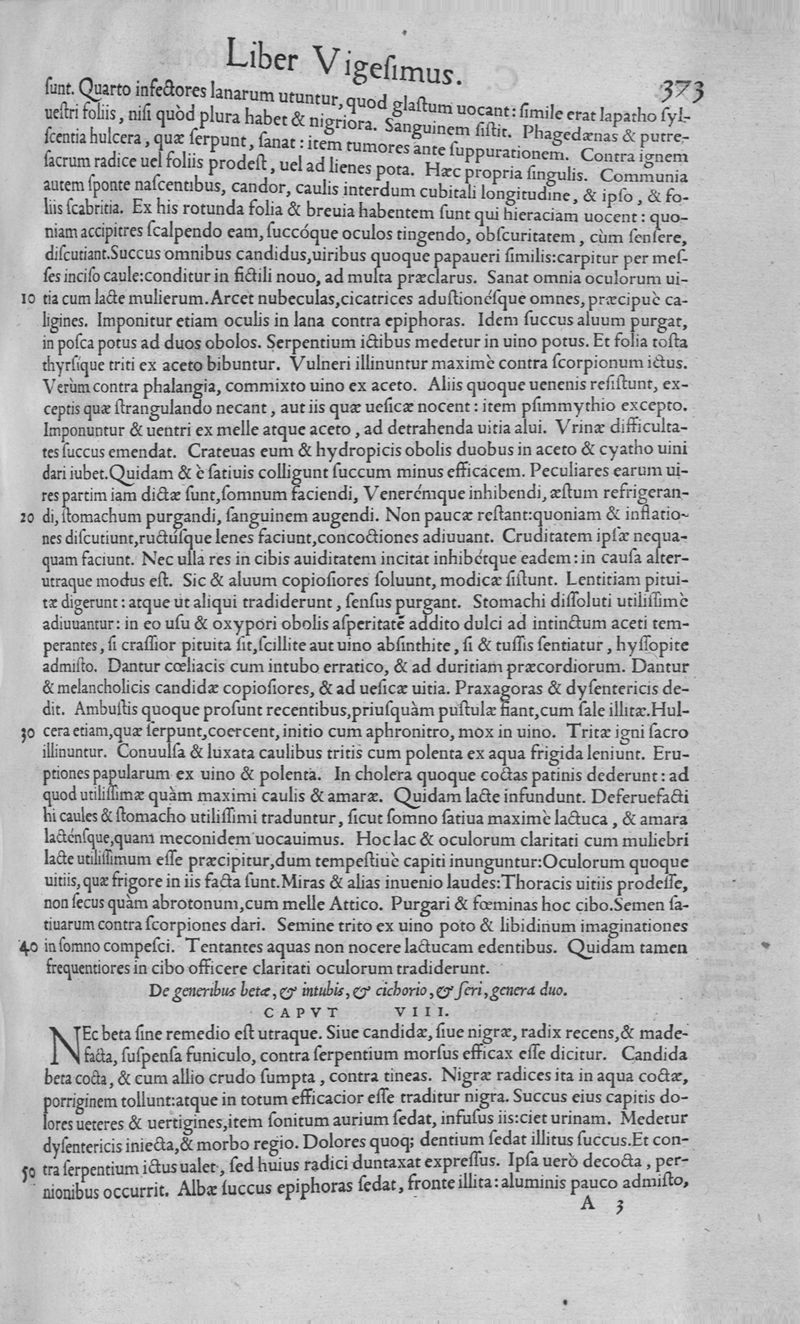 Liber Vigeſimus. 373
ſunt. Quarto infectores lanarum utuntur, quod glaſtum uocant: ſimile erat lapatho ſyl-
ueſtri foliis, niſi quòd plura habet & nigriora. Sanguinem ſiſtit. Phagedænas & putre-
ſcentia hulcera, quæ ſerpunt, ſanat: item tumores ante ſuppurationem. Contra ignem
ſacrum radice uel foliis prodeſt, uel ad lienes pota. Hæc propria ſingulis. Communia
autem ſponte naſcentibus, candor, caulis interdum cubitali longitudine, & ipſo, & fo-
liis ſcabritia. Ex his rotunda folia & breuia habentem ſunt qui hieraciam uocent: quo-
niam accipitres ſcalpendo eam, ſuccóque oculos tingendo, obſcuritatem, cùm ſenſere,
diſcutiant.Succus omnibus candidus,uiribus quoque papaueri ſimilis:carpitur per meſ-
ſes inciſo caule:conditur in fictili nouo, ad multa præclarus. Sanat omnia oculorum ui-
10 tia cum lacte mulierum.Arcet nubeculas,cicatrices aduſtionéſque omnes, præcipuè ca-
ligines. Imponitur etiam oculis in lana contra epiphoras. Idem ſuccus aluum purgat,
in poſca potus ad duos obolos. Serpentium ictibus medetur in uino potus. Et folia toſta
thyrſique triti ex aceto bibuntur. Vulneri illinuntur maximè contra ſcorpionum ictus.
Verùm contra phalangia, commixto uino ex aceto. Aliis quoque uenenis reſiſtunt, ex-
ceptis quæ ſtrangulando necant, aut iis quæ ueſicæ nocent: item pſimmythio excepto.
Imponuntur & uentri ex melle atque aceto, ad detrahenda uitia alui. Vrinæ difficulta-
tes ſuccus emendat. Crateuas eum & hydropicis obolis duobus in aceto & cyatho uini
dari iubet.Quidam & è ſatiuis colligunt ſuccum minus efficacem. Peculiares earum ui-
res partim iam dictæ ſunt,ſomnum faciendi, Venerémque inhibendi, æſtum refrigeran-
20 di, ſtomachum purgandi, ſanguinem augendi. Non paucæ reſtant:quoniam & inflatio-
nes diſcutiunt,ructúſque lenes faciunt,concoctiones adiuuant. Cruditatem ipſæ nequa-
quam faciunt. Nec ulla res in cibis auiditatem incitat inhibétque eadem: in cauſa alter-
utraque modus eſt. Sic & aluum copioſiores ſoluunt, modicæ ſiſtunt. Lentitiam pitui-
tæ digerunt: atque ut aliqui tradiderunt, ſenſus purgant. Stomachi diſſoluti utiliſſimè
adiuuantur: in eo uſu & oxypori obolis aſperitatē addito dulci ad intinctum aceti tem-
perantes, ſi craſſior pituita ſit,ſcillite aut uino abſinthite, ſi & tuſſis ſentiatur, hyſſopite
admiſto. Dantur cœliacis cum intubo erratico, & ad duritiam præcordiorum. Dantur
& melancholicis candidæ copioſiores, & ad ueſicæ uitia. Praxagoras & dyſentericis de-
dit. Ambuſtis quoque proſunt recentibus,priuſquàm puſtulæ fiant,cum ſale illitæ.Hul-
30 cera etiam,quæ ſerpunt,coercent, initio cum aphronitro, mox in uino. Tritæ igni ſacro
illinuntur. Conuulſa & luxata caulibus tritis cum polenta ex aqua frigida leniunt. Eru-
ptiones papularum ex uino & polenta. In cholera quoque coctas patinis dederunt: ad
quod utiliſſimæ quàm maximi caulis & amaræ. Quidam lacte infundunt. Deferuefacti
hi caules & ſtomacho utiliſſimi traduntur, ſicut ſomno ſatiua maximè lactuca, & amara
lacténſque,quam meconidem uocauimus. Hoc lac & oculorum claritati cum muliebri
lacte utiliſſimum eſſe præcipitur,dum tempeſtiuè capiti inunguntur:Oculorum quoque
uitiis, quæ frigore in iis facta ſunt.Miras & alias inuenio laudes:Thoracis uitiis prodeſſe,
non ſecus quàm abrotonum,cum melle Attico. Purgari & fœminas hoc cibo.Semen ſa-
tiuarum contra ſcorpiones dari. Semine trito ex uino poto & libidinum imaginationes
40 in ſomno compeſci. Tentantes aquas non nocere lactucam edentibus. Quidam tamen
frequentiores in cibo officere claritati oculorum tradiderunt.
De generibus betæ, & intubis, & cichorio, & ſeri, genera duo.
CAPVT VIII.
NEc beta ſine remedio eſt utraque. Siue candidæ, ſiue nigræ, radix recens,& made-
facta, ſuſpenſa funiculo, contra ſerpentium morſus efficax eſſe dicitur. Candida
beta cocta, & cum allio crudo ſumpta, contra tineas. Nigræ radices ita in aqua coctæ,
porriginem tollunt:atque in totum efficacior eſſe traditur nigra. Succus eius capitis do-
lores ueteres & uertigines,item ſonitum aurium ſedat, infuſus iis:ciet urinam. Medetur
dyſentericis iniecta,& morbo regio. Dolores quoq; dentium ſedat illitus ſuccus.Et con-
50 tra ſerpentium ictus ualet, ſed huius radici duntaxat expreſſus. Ipſa uerò decocta, per-
nionibus occurrit. Albæ ſuccus epiphoras ſedat, fronte illita: aluminis pauco admiſto,
A 3